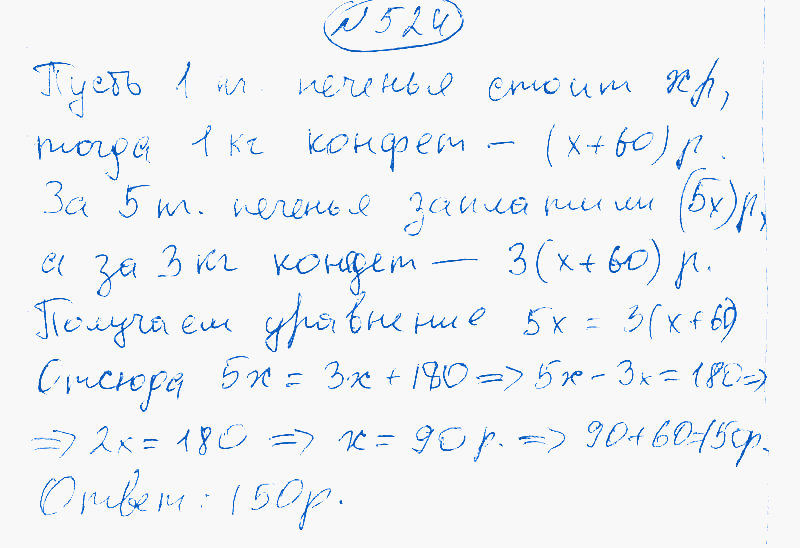 N 524
Пусть 1 п. печенья стоит x р,
тогда 1 кг конфет — (x+60) р.
За 5 п. печенья заплатили (5x) р,
а за 3 кг конфет — 3(x+60) р.
Получаем уравнение 5x = 3(x+60)
Отсюда 5x = 3x + 180 => 5x - 3x = 180 =>
=> 2x = 180 => x = 90 р. => 90+60=150р.
Ответ: 150р.